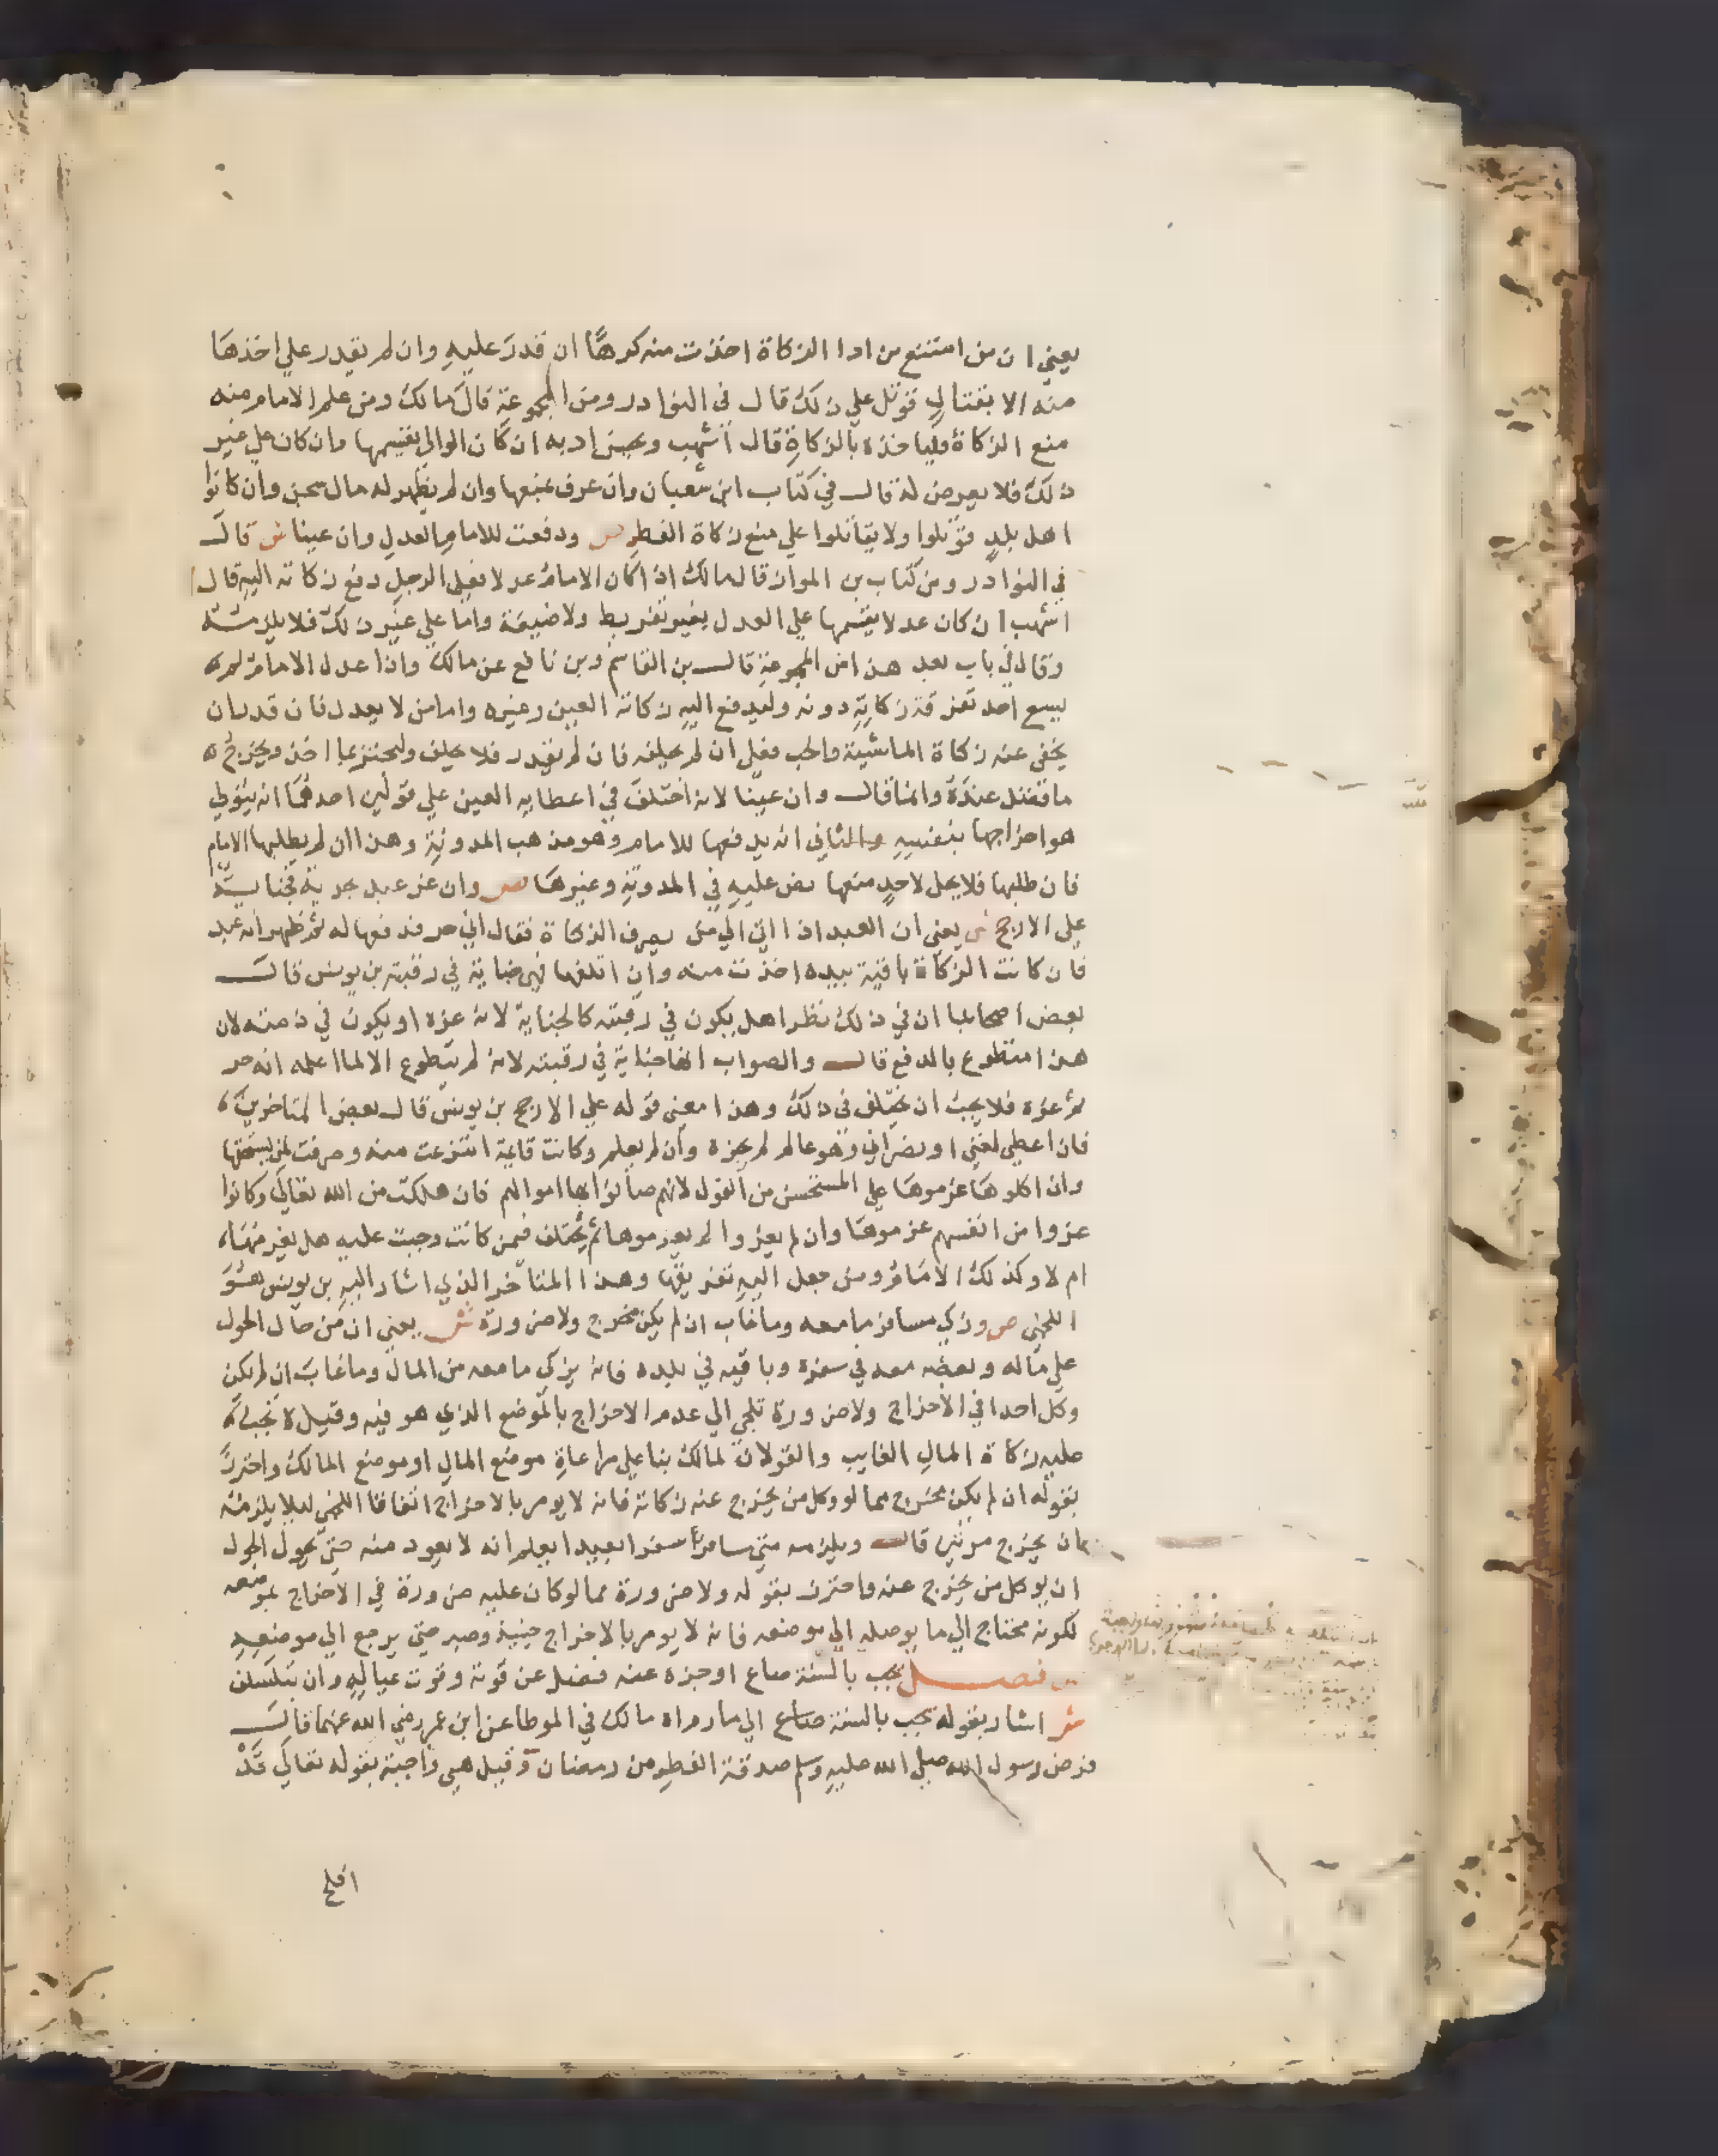 يعني ان من امتنع من ادا الزكاة اخذت منه كرها ان قدر عليه وان لم يقدر علي اخذها
منه الا بقتال قوتل علي ذلك قال في النوادر ومن المجموعة قال مالك ومن علم الامام منه
منع الزكاة فلياخذه بالزكاة قال اشهب ويحسن ادبه ان كان الوالي يقسمها وان كان علي غير
ذلك فلا يعرض له قال في كتاب ابن شعبان وان عرف بمنعها وان لم يظهر له مال سجن وان كانوا
اهل بلد قوتلوا ولا يقاتلوا علي منع زكاة الفطر ص ودفعت للامام العدل وان عينا ش قال
في النوادر ومن كتاب بن المواز قال مالك اذا كان الامام عدلا فعلي الرجل دفع زكاته اليه قال
اشهب ان كان عدلا يقسمها علي العدل بغير تفريط ولا ضيعة واما علي غير ذلك فلا يلزمه
وقال في باب بعد هذا من المجموعة قال بن القاسم وبن نافع عن مالك واذا عدل الامام لم
يسع احد تفرقة زكاته دونه وليدفع اليه زكاة العين وغيره واما من لا يعدل فان قدر ان
يخفي عنه زكاة الماشية والحب فعل ان لم يحلفه فان لم يقدر فلا يحلف وليجتز بما اخذ ويخرج
ما فضل عنده وانما قال وان عينا لانه اختلف في اعطايه العين علي قولين احدهما انه يتولي
هو اخراجها بنفسه والثاني انه يدفعها للامام وهو مذهب المدونة وهذا ان لم يطلبها الامام
فان طلبها فلا يحل لاحد منعها نص عليه في المدونة وغيرها ص وان غر عبد بحرية فجناية
علي الارجح ش يعني ان العبد اذا اتي الي من يصرف الزكاة فقال اني حر فدفعها له ثم ظهر انه عبد
فان كانت الزكاة باقية بيده اخذت منه وان اتلفها فهي جناية في رقبته بن يونس قال
بعض اصحابنا ان في ذلك نظرا هل يكون في رقبته كالجناية لانه غره او يكون في ذمته لان
هذا متطوع بالدفع قال والصواب انها جناية في رقبته لانه لم يتطوع الا لما اعلمه انه حر
ثم غره فلا يجب ان يختلف في ذلك وهذا معني قوله علي الارجح بن يونس قال بعض المتاخرين
فان اعطي لغني او نصراني وهو عالم لم يجزه وان لم يعلم وكانت قايمة انتزعت منه وصرفت لمن يستحقها
وان اكلوها غرموها علي المستحسن من القول لانهم صانوا بها اموالهم فان هلكت من الله تعالي وكانوا
غروا من انفسهم غرموها وان لم يغروا لم يغرموها ثم يختلف فيمن كانت وجبت عليه هل يغرمها
ام لا وكذلك الامام ومن جعل اليه تفريقها وهذا المتاخر الذي اشار اليه بن يونس هو
اللخمي ص وزكي مسافر ما معه وما غاب ان لم يكن مخرج ولا ضرورة ش يعني ان من حال الحول
علي ماله وبعضه معه في سفره وباقيه في بلده فانه يزكي ما معه من المال وما غاب ان لم يكن
وكل احدا في الاخراج ولا ضرورة تلجي الي عدم الاخراج بالموضع الذي هو فيه وقيل لا تجب
عليه زكاة المال الغايب والقولان لمالك بنا علي مراعاة موضع المال او موضع المالك واحترز
بقوله ان لم يكن مخرج مما لو وكل من يخرج عنه زكاته فانه لا يومر بالاخراج اتفاقا اللخمي ليلا يلزمه
ان يخرج مرتين قال ويلزمه متي سافر سفرا بعيدا يعلم انه لا يعود منه حتي يحول الحول
ان يوكل من يخرج عنه واحترز بقوله ولا ضرورة مما لو كان عليه ضرورة في الاخراج بموضعه
لكونه محتاج الي ما يوصله الي موضعه فانه لا يومر بالاخراج حينيذ وصبر حتي يرجع الي موضعه
ص فصل يجب بالسنة صاع او جزه عنه فضل عن قوته وقوت عياله وان بتسلف
ش اشار بقوله يجب بالسنة صاع الي ما رواه مالك في الموطا عن ابن عمر رضي الله عنهما قال
فرض رسول الله صلي الله عليه وسلم صدقة الفطر من رمضان وقيل هي واجبة بقوله تعالي قد
افلح